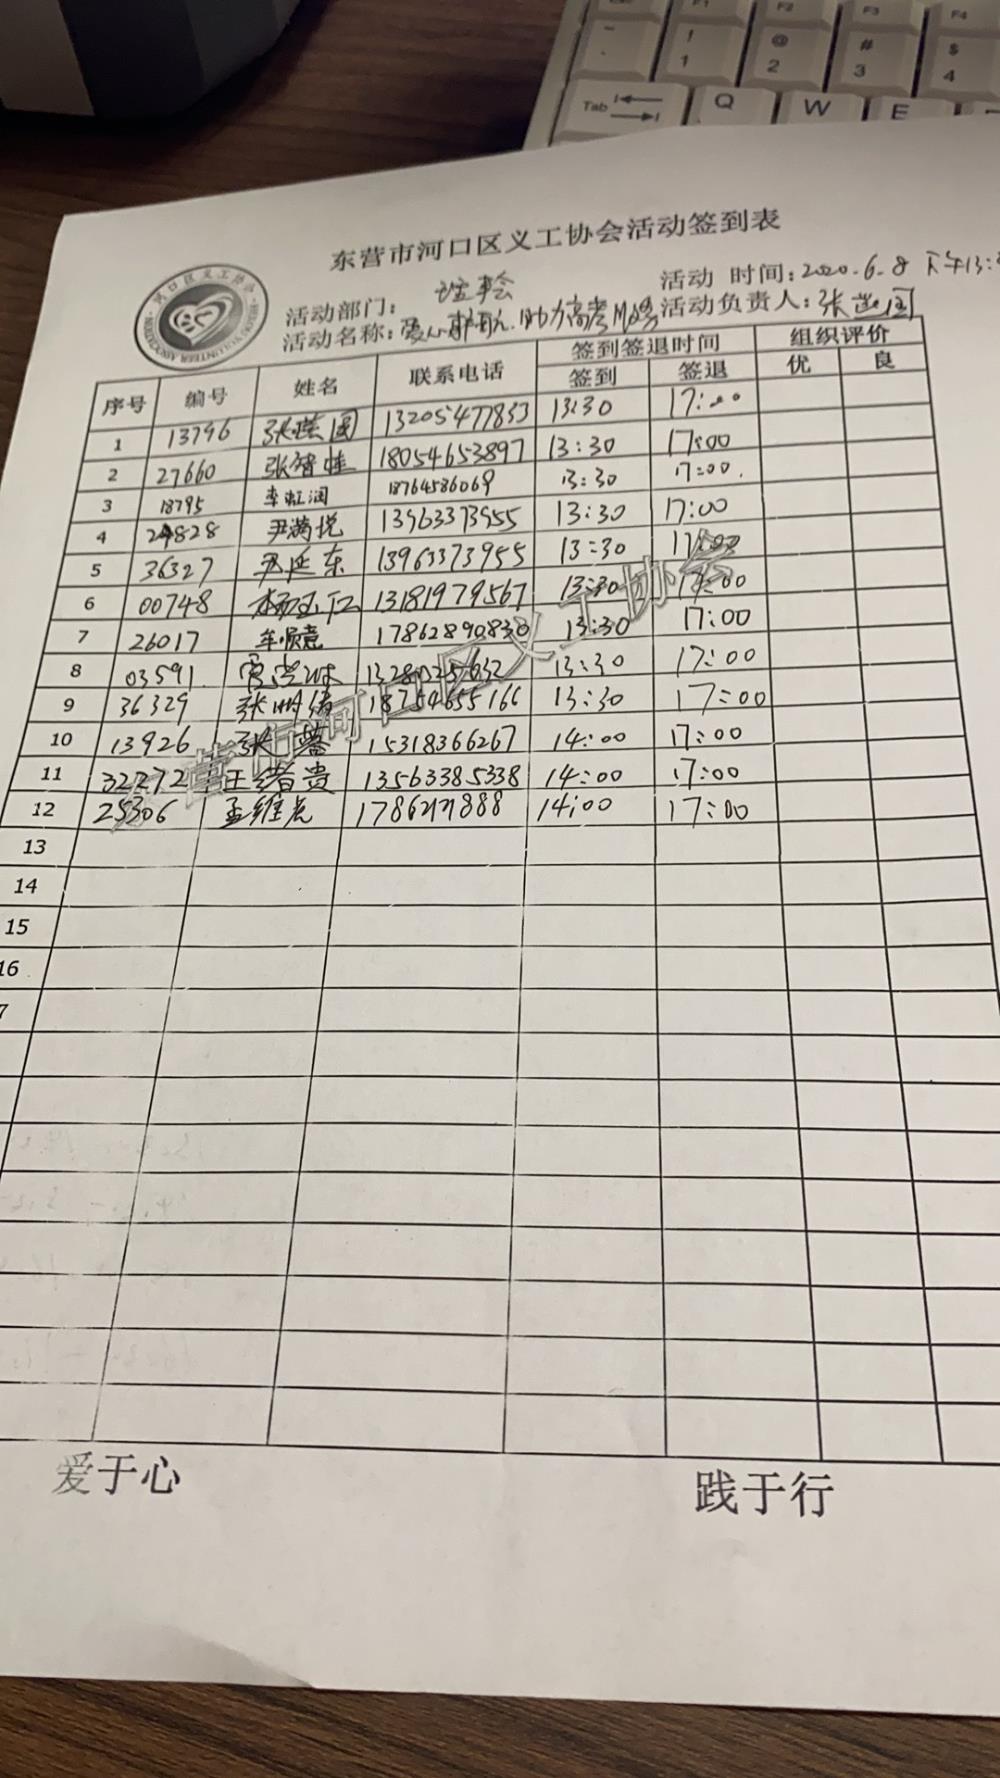 F1 F2 F3 F4
~ ! @ # $
1 2 3 4
Tab Q W E
东营市河口区义工协会活动签到表
河口区义工协会
活动部门: 活动 时间:2020.6.8 下午13:
活动名称:爱心 助力高考 活动负责人:张
序号 编号 姓名 联系电话 签到签退时间 组织评价
签到 签退 优 良
1 13796 张燕国 13205477833 13:30 17:00
2 27660 张智桂 18054653897 13:30 17:00.
3 18795 李虹润 18764586069 13:30 17:00.
4 24828 尹满悦 13963373955 13:30 17:00
5 36327 尹延东 13963373955 13:30 17:00
6 00748 杨玉红 13181979567 13:30 17:00
7 26017 车顺意 17862890830 13:30 17:00
8 03591 13:30 17:00
9 36329 张 18754655166 13:30 17:00
10 13926 张 15318366267 14:00 17:00
11 32272 王绪贵 13563385338 14:00 17:00
12 25306 孟维亮 14:00 17:00
13
14
15
16
7
东营市河口区义工协会
爱于心 践于行